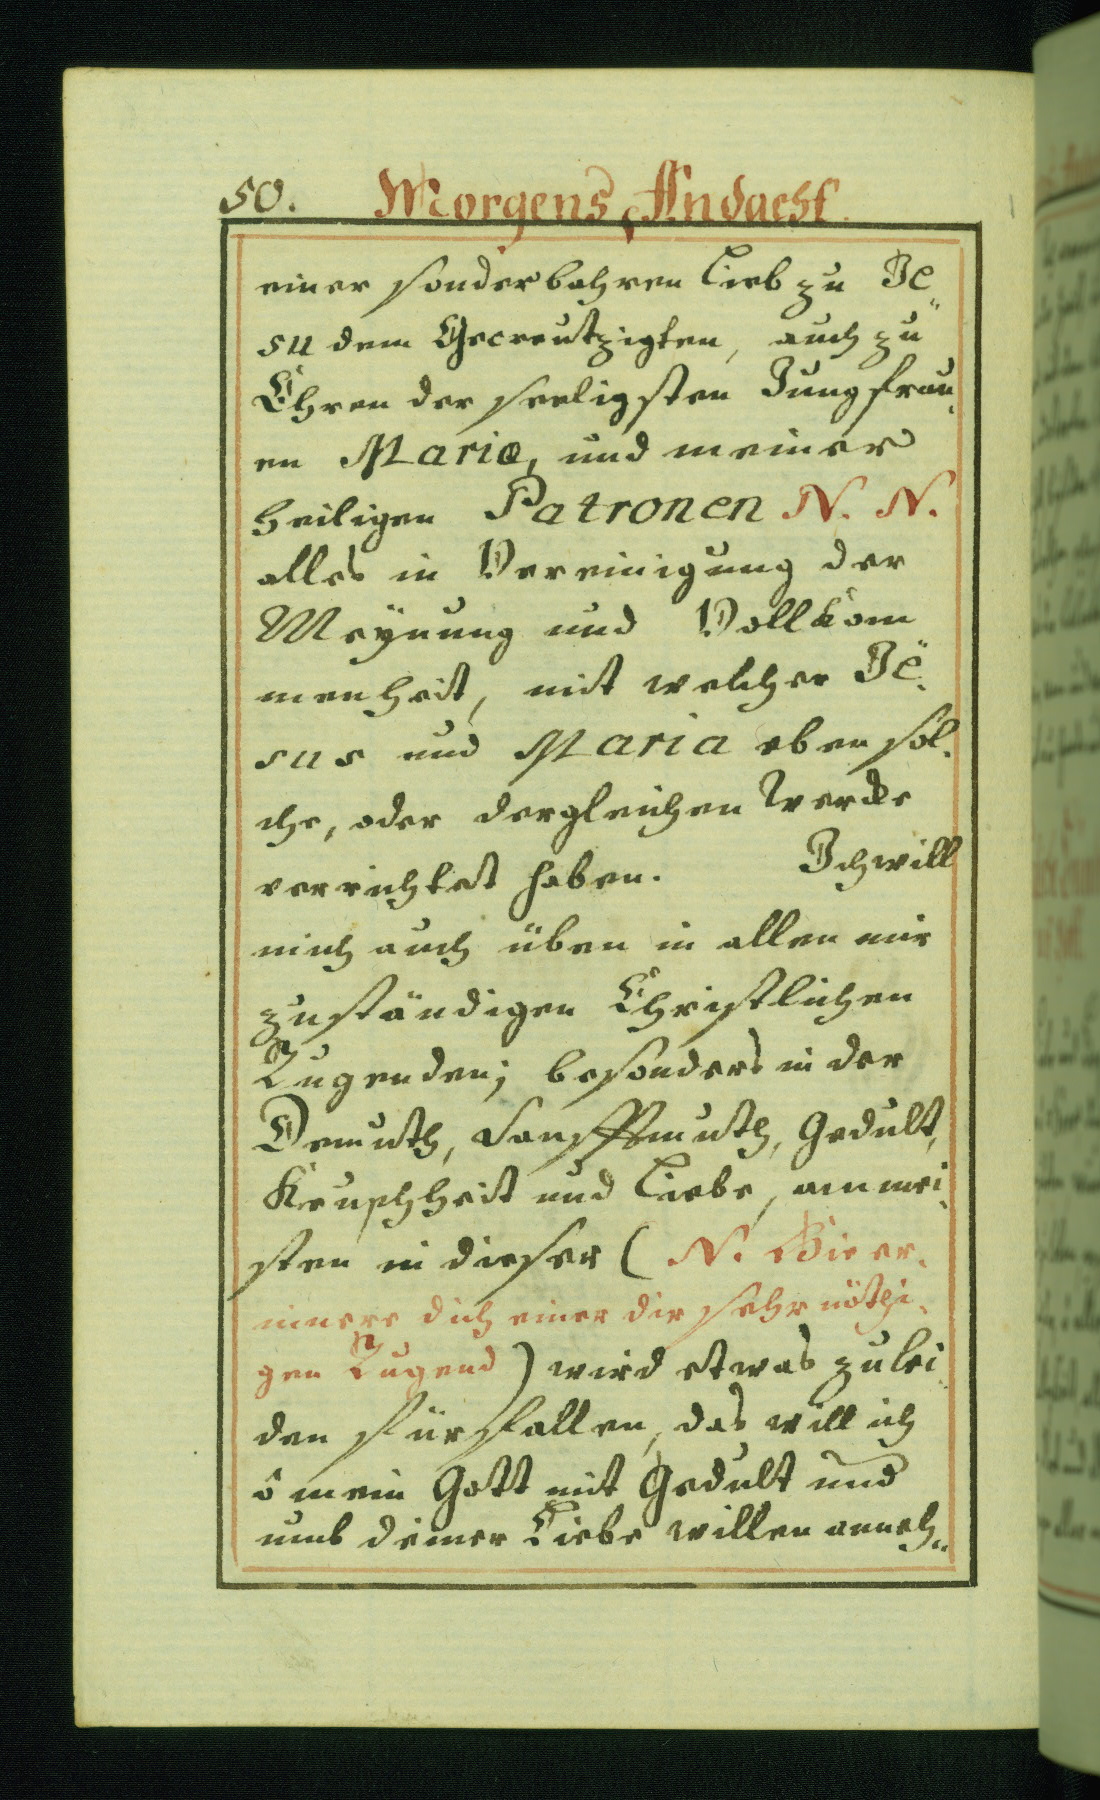 50. Morgens Andacht.
einer sonderbahren Lieb zu Je„
su dem Gecreutzigten, auch zu
Ehren der seeligsten Jungfrau„
en Mariæ, und meiner
heiligen Patronen N. N.
alles in Vereinigung der
Meÿnung und Vollkom
menheit, mit welcher Je„
sus und Maria eben sol„
che, oder dergleichen Wercke
verrichtet haben. Ich will
mich auch üben in allen mir
zuständigen Christlichen
Tugenden; besonders in der
Demuth, Sanfftmuth, Gedult,
Keuschheit und Liebe, am mei„
sten in dieser ( N. Hie er„
innere dich einer dir sehr nöthi„
gen Tugend ) wird etwas zu lei„
den fürfallen, das will ich
ô mein Gott mit Gedult und
umb deiner Liebe willen anneh„